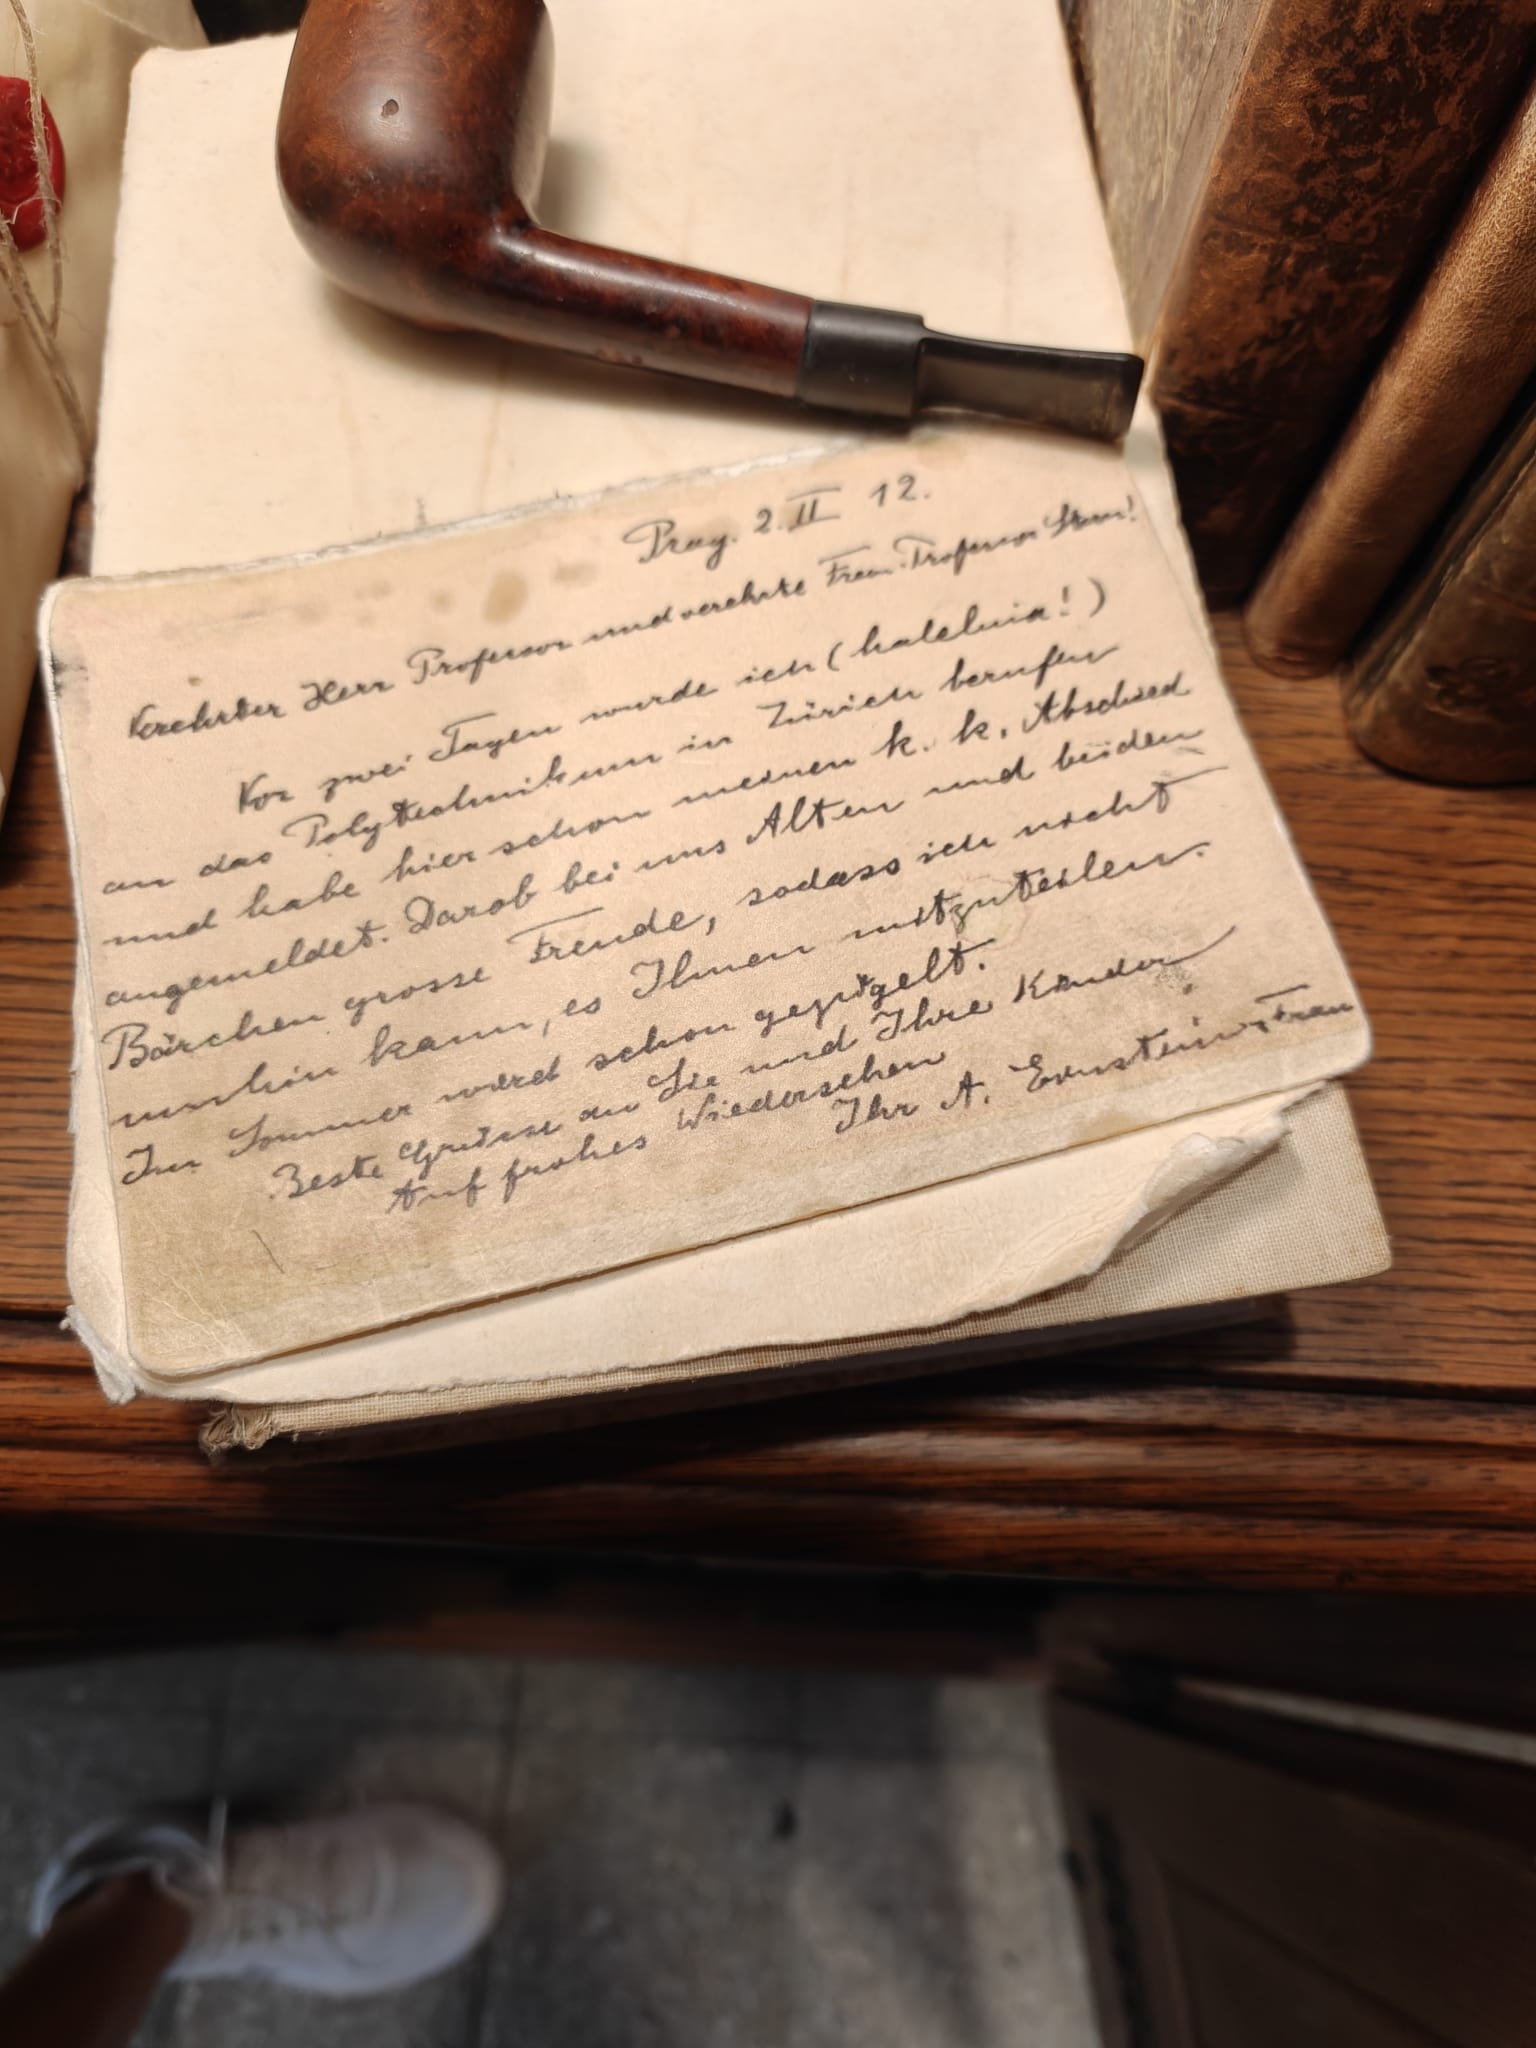 Prag. 2. II 12.
Verehrter Herr Professor und verehrte Frau Professor Stern!
Vor zwei Tagen wurde ich (haleluia!)
an das Polytechnikum in Zürich berufen
und habe hier schon meinen k. k. Abschied
angemeldet. Darob bei uns Alten und beiden
Bärchen grosse Freude, sodass ich nicht
umhin kann, es Ihnen mitzuteilen.
Im Sommer wird schon gezügelt.
Beste Grüsse an Sie und Ihre Kinder
Auf frohes Wiedersehen
Ihr A. Einstein u. Frau